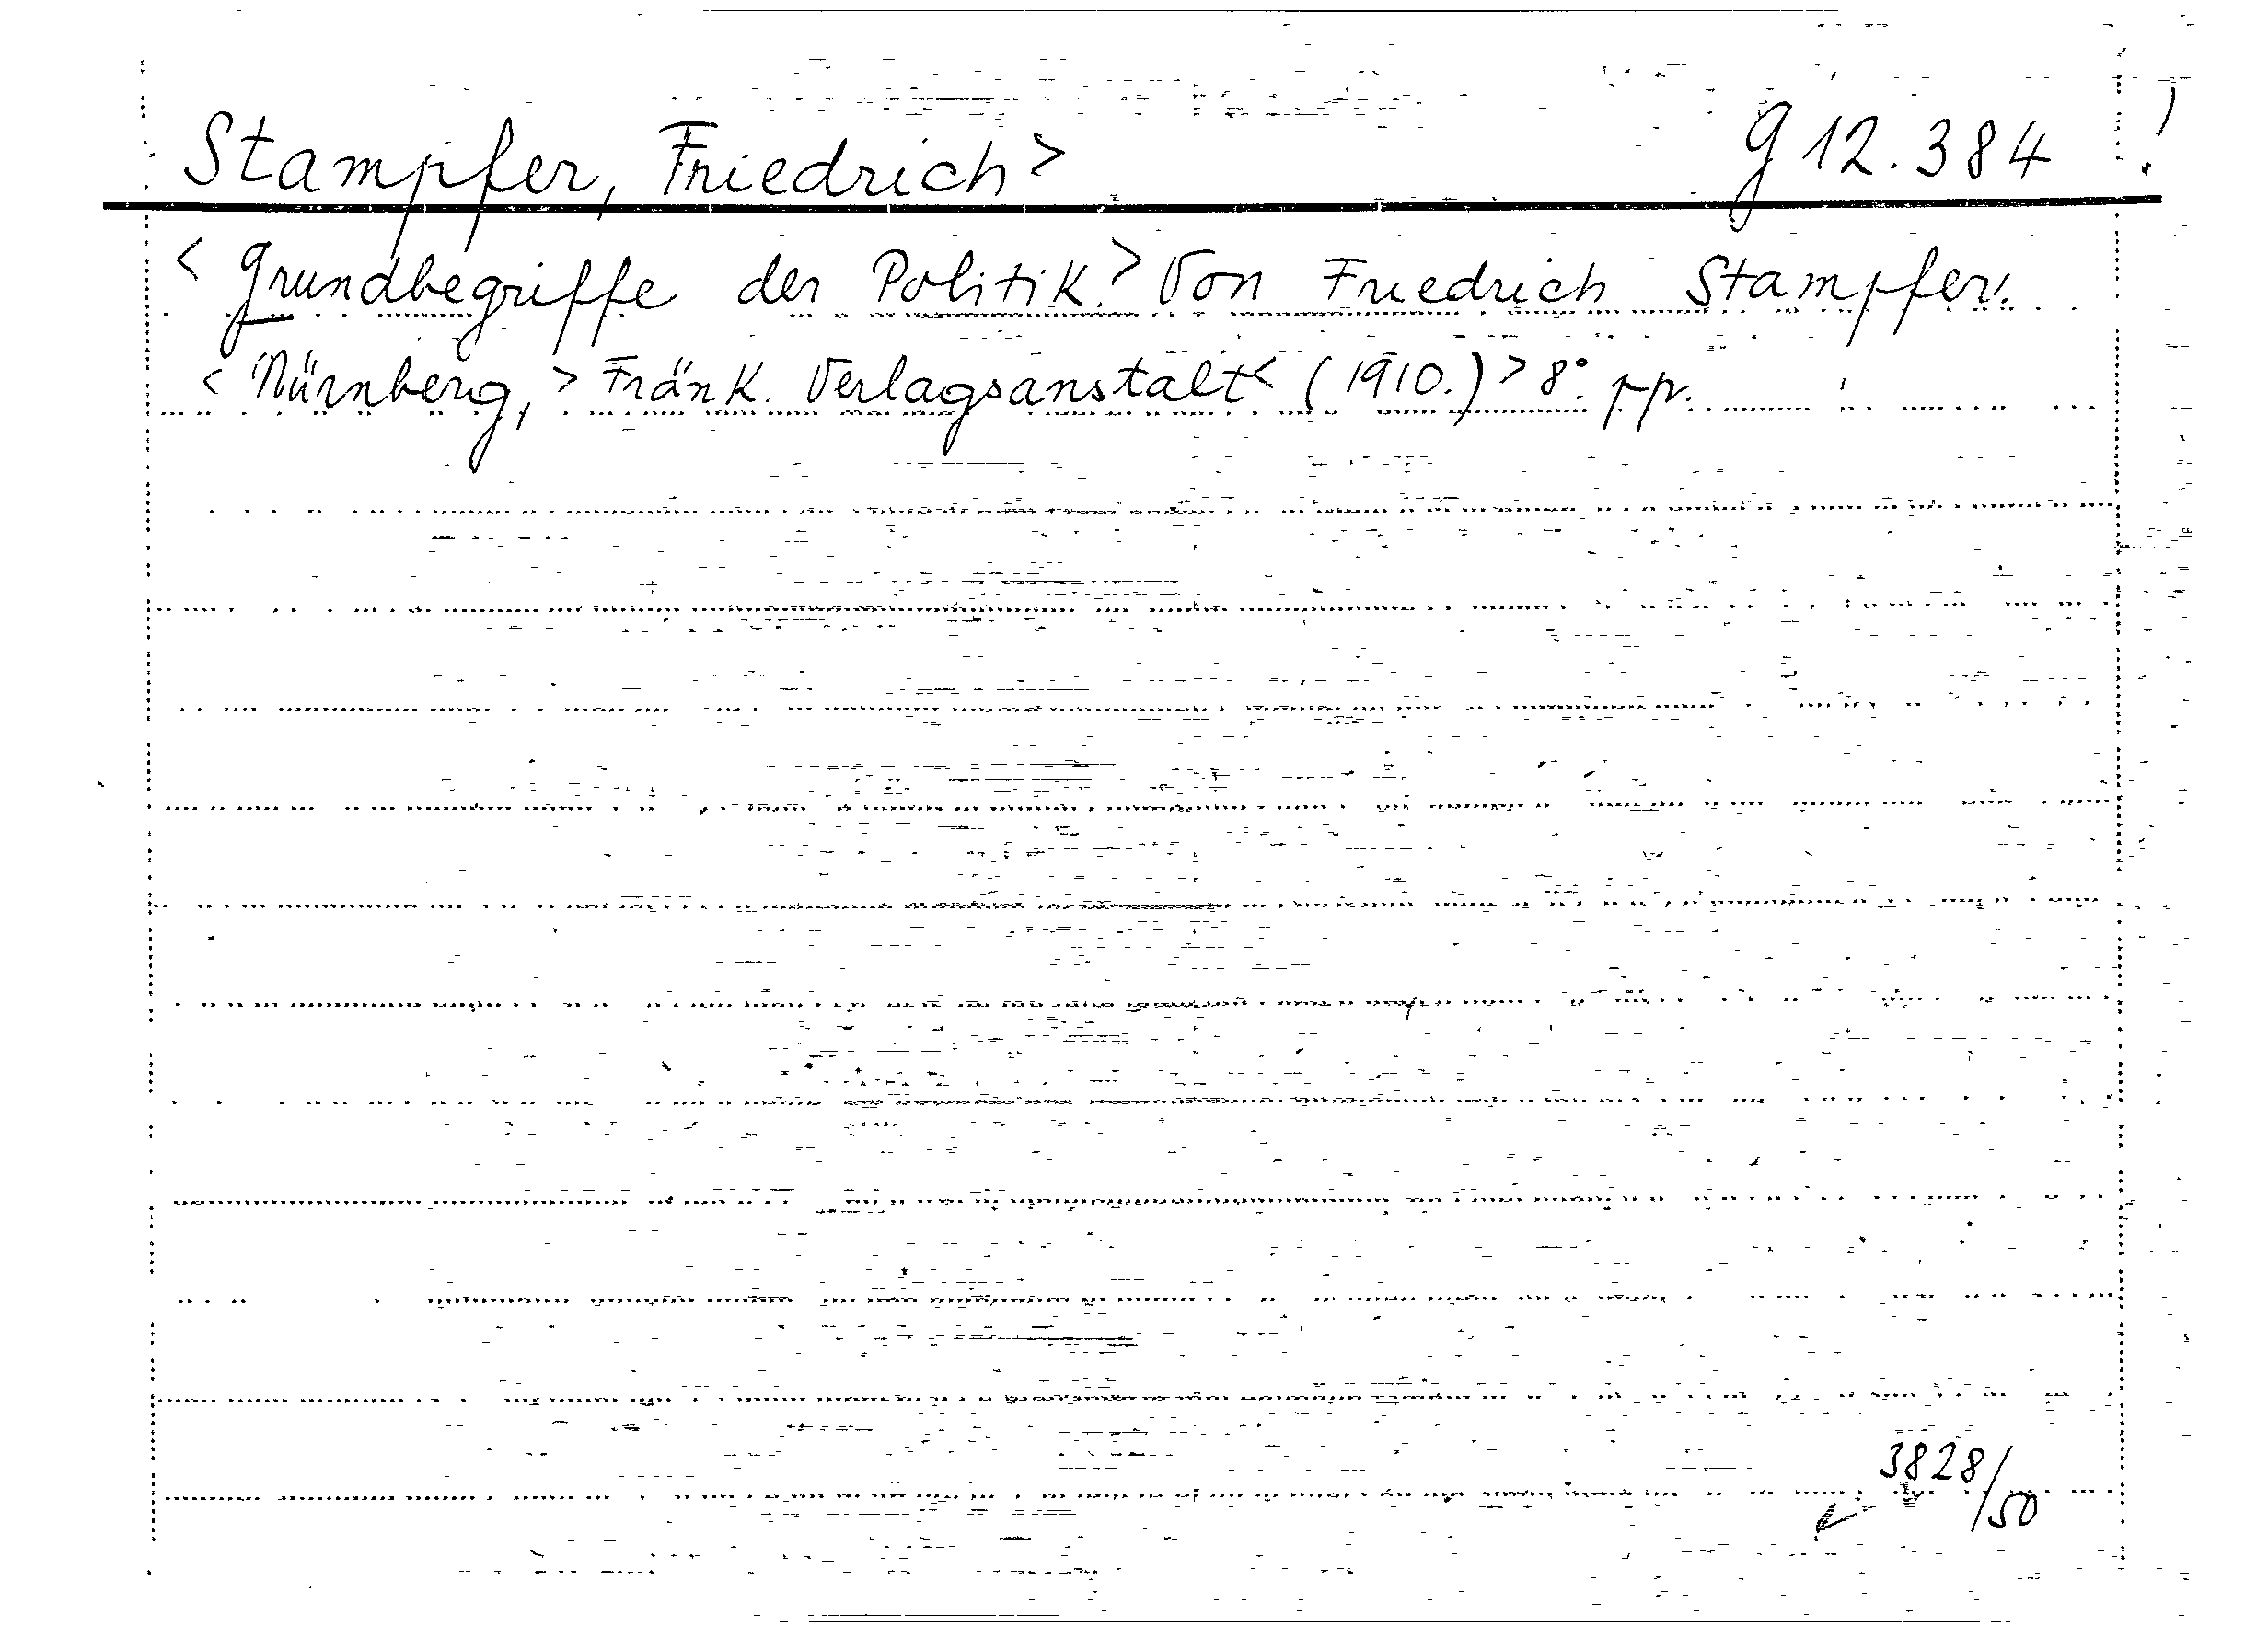 Stampfer, Friedrich> G 12.384 !
<Grundbegriffe der Politik.> Von Friedrich Stampfer.
<Nürnberg,> Fränk. Verlagsanstalt< (1910.)> 8°. pp.
3828/50